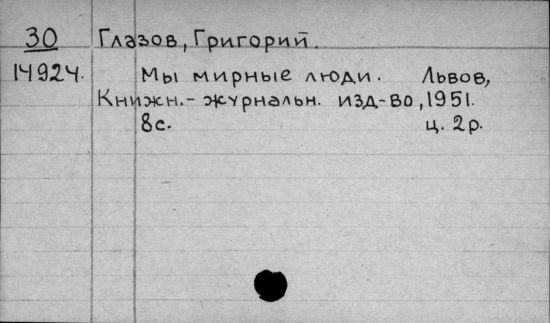 30 Глазов, Григорий.
14924. Мы мирные люди. Львов,
Книжн.-журнальн. изд-во, 1951.
8с. ц. 2р.